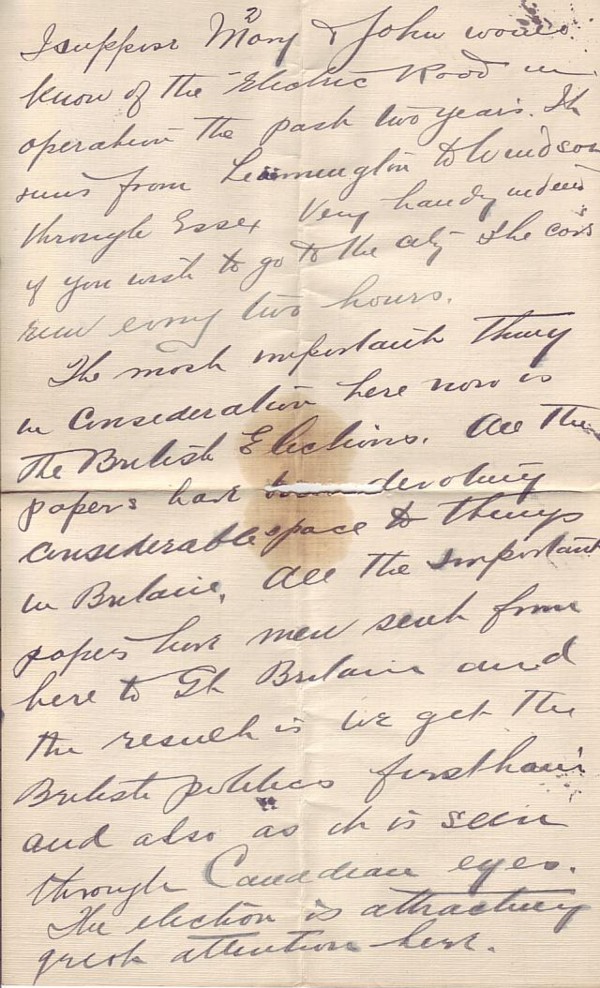 2
I suppose Mary & John would
know of the Electric Road in
operation the past two years. It
runs from Leamington to Windsor
through Essex Very handy indeed
if you wish to go to the city the cars
run every two hours.
The most important thing
in consideration here now is
the British Elections. All the
papers have been devoting
considerable space to things
in Britain. All the important
papers have men sent from
here to Gt Britain and
the result is we get the
British politics firsthand
and also as it is seen
through Canadian eyes.
The election is attracting
great attention here.